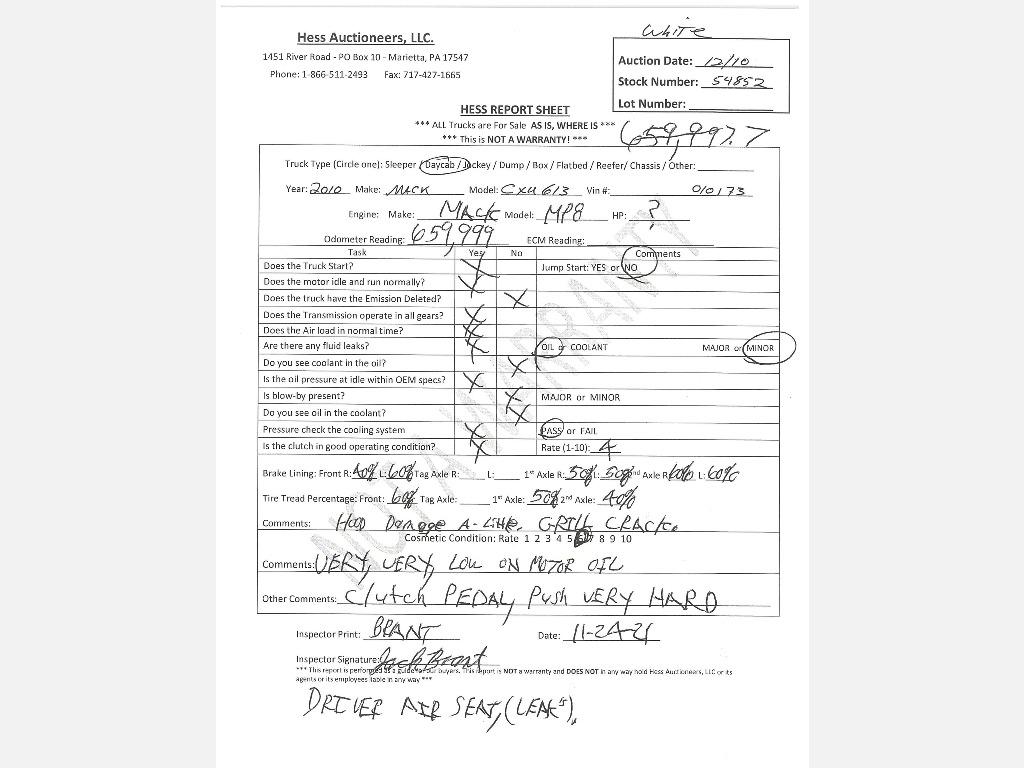 White
Hess Auctioneers, LLC.
1451 River Road - PO Box 10 - Marietta, PA 17547
Phone: 1-866-511-2493 Fax: 717-427-1665
Auction Date: 12/10
Stock Number: 54852
Lot Number:
HESS REPORT SHEET
*** ALL Trucks are For Sale AS IS, WHERE IS ***
*** This is NOT A WARRANTY! ***
659,997.7
Truck Type (Circle one): Sleeper / Daycab / Jockey / Dump / Box / Flatbed / Reefer/ Chassis / Other:
Year: 2010 Make: MACK Model: CXU 613 Vin #: 010173
Engine: Make: MACK Model: MP8 HP: ?
Odometer Reading: 659,999 ECM Reading:
Task Yes No Comments
Does the Truck Start? X Jump Start: YES or NO
Does the motor idle and run normally? X
Does the truck have the Emission Deleted? X
Does the Transmission operate in all gears? X
Does the Air load in normal time? X
Are there any fluid leaks? X OIL or COOLANT MAJOR or MINOR
Do you see coolant in the oil? X
Is the oil pressure at idle within OEM specs? X
Is blow-by present? X MAJOR or MINOR
Do you see oil in the coolant? X
Pressure check the cooling system X PASS or FAIL
Is the clutch in good operating condition? X Rate (1-10): 4
Brake Lining: Front R: 40% L: 60% Tag Axle R: L: 1st Axle R: 50% L: 50% 2nd Axle R: 60% L: 60%
Tire Tread Percentage: Front: 60% Tag Axle: 1st Axle: 50% 2nd Axle: 40%
Comments: HOOD Damage A-Little. GRILL CRACK.
Cosmetic Condition: Rate 1 2 3 4 5 6 7 8 9 10
Comments: VERY, VERY, LOW ON MOTOR OIL
Other Comments: Clutch PEDAL, Push VERY HARD
Inspector Print: BRANT Date: 11-24-21
Inspector Signature: Jack Brant
*** This report is performed as a guide for our buyers. This report is NOT a warranty and DOES NOT in any way hold Hess Auctioneers, LLC or its
agents or its employees liable in any way ***
DRIVER AIR SEAT, (LEAKS).
NOT A WARRANTY